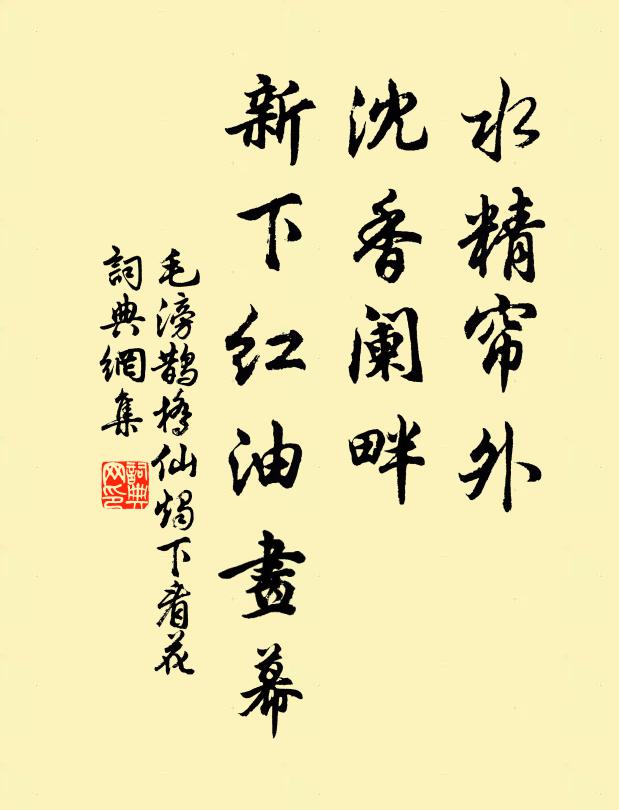 水精帘外
沈香阑畔
新下红油畫幕
毛滂鹊橋仙燭下看花
詞典網集
詞典網印